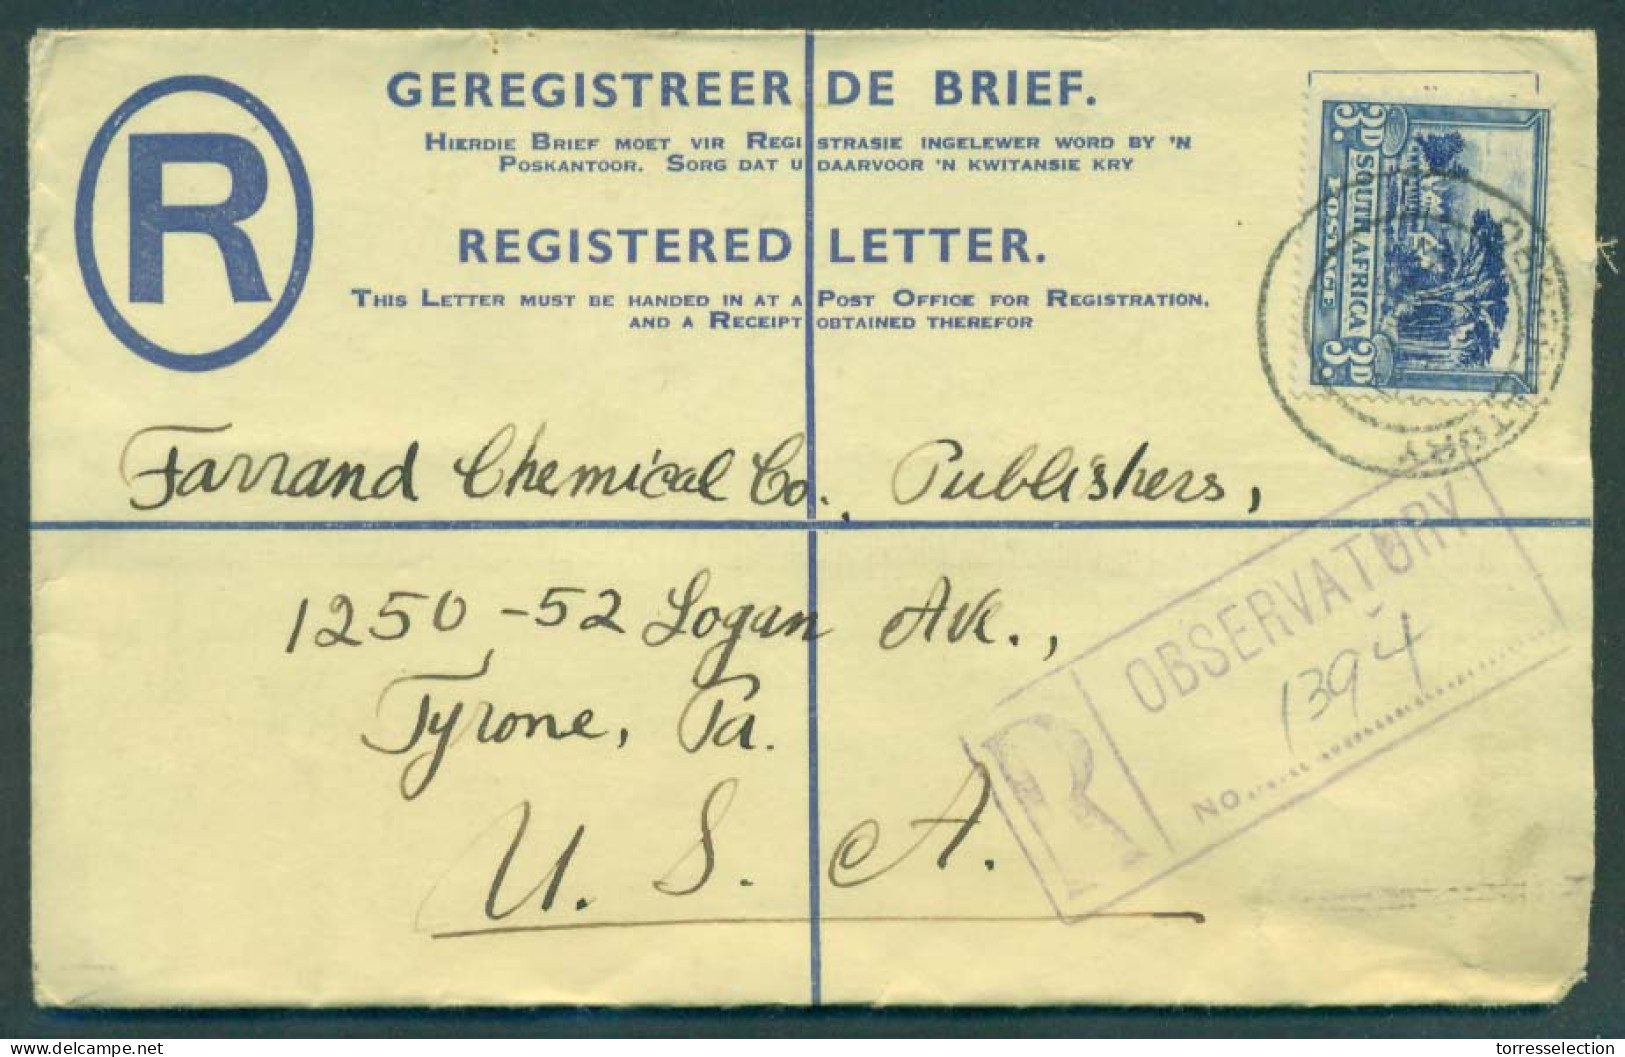 GEREGISTREER DE BRIEF.
HIERDIE BRIEF MOET VIR REGISTRASIE INGELEWER WORD BY 'N
POSKANTOOR. SORG DAT U DAARVOOR 'N KWITANSIE KRY
R
REGISTERED LETTER.
THIS LETTER MUST BE HANDED IN AT A POST OFFICE FOR REGISTRATION,
AND A RECEIPT OBTAINED THEREFOR
3D.
SOUTH AFRICA
POSTAGE
3D.
OBSERVATORY
Farrand Chemical Co. Publishers,
1250-52 Logan Ave.,
Tyrone, Pa.
U. S. A.
R
OBSERVATORY
NO. 1394
delcampe.net
torresselection